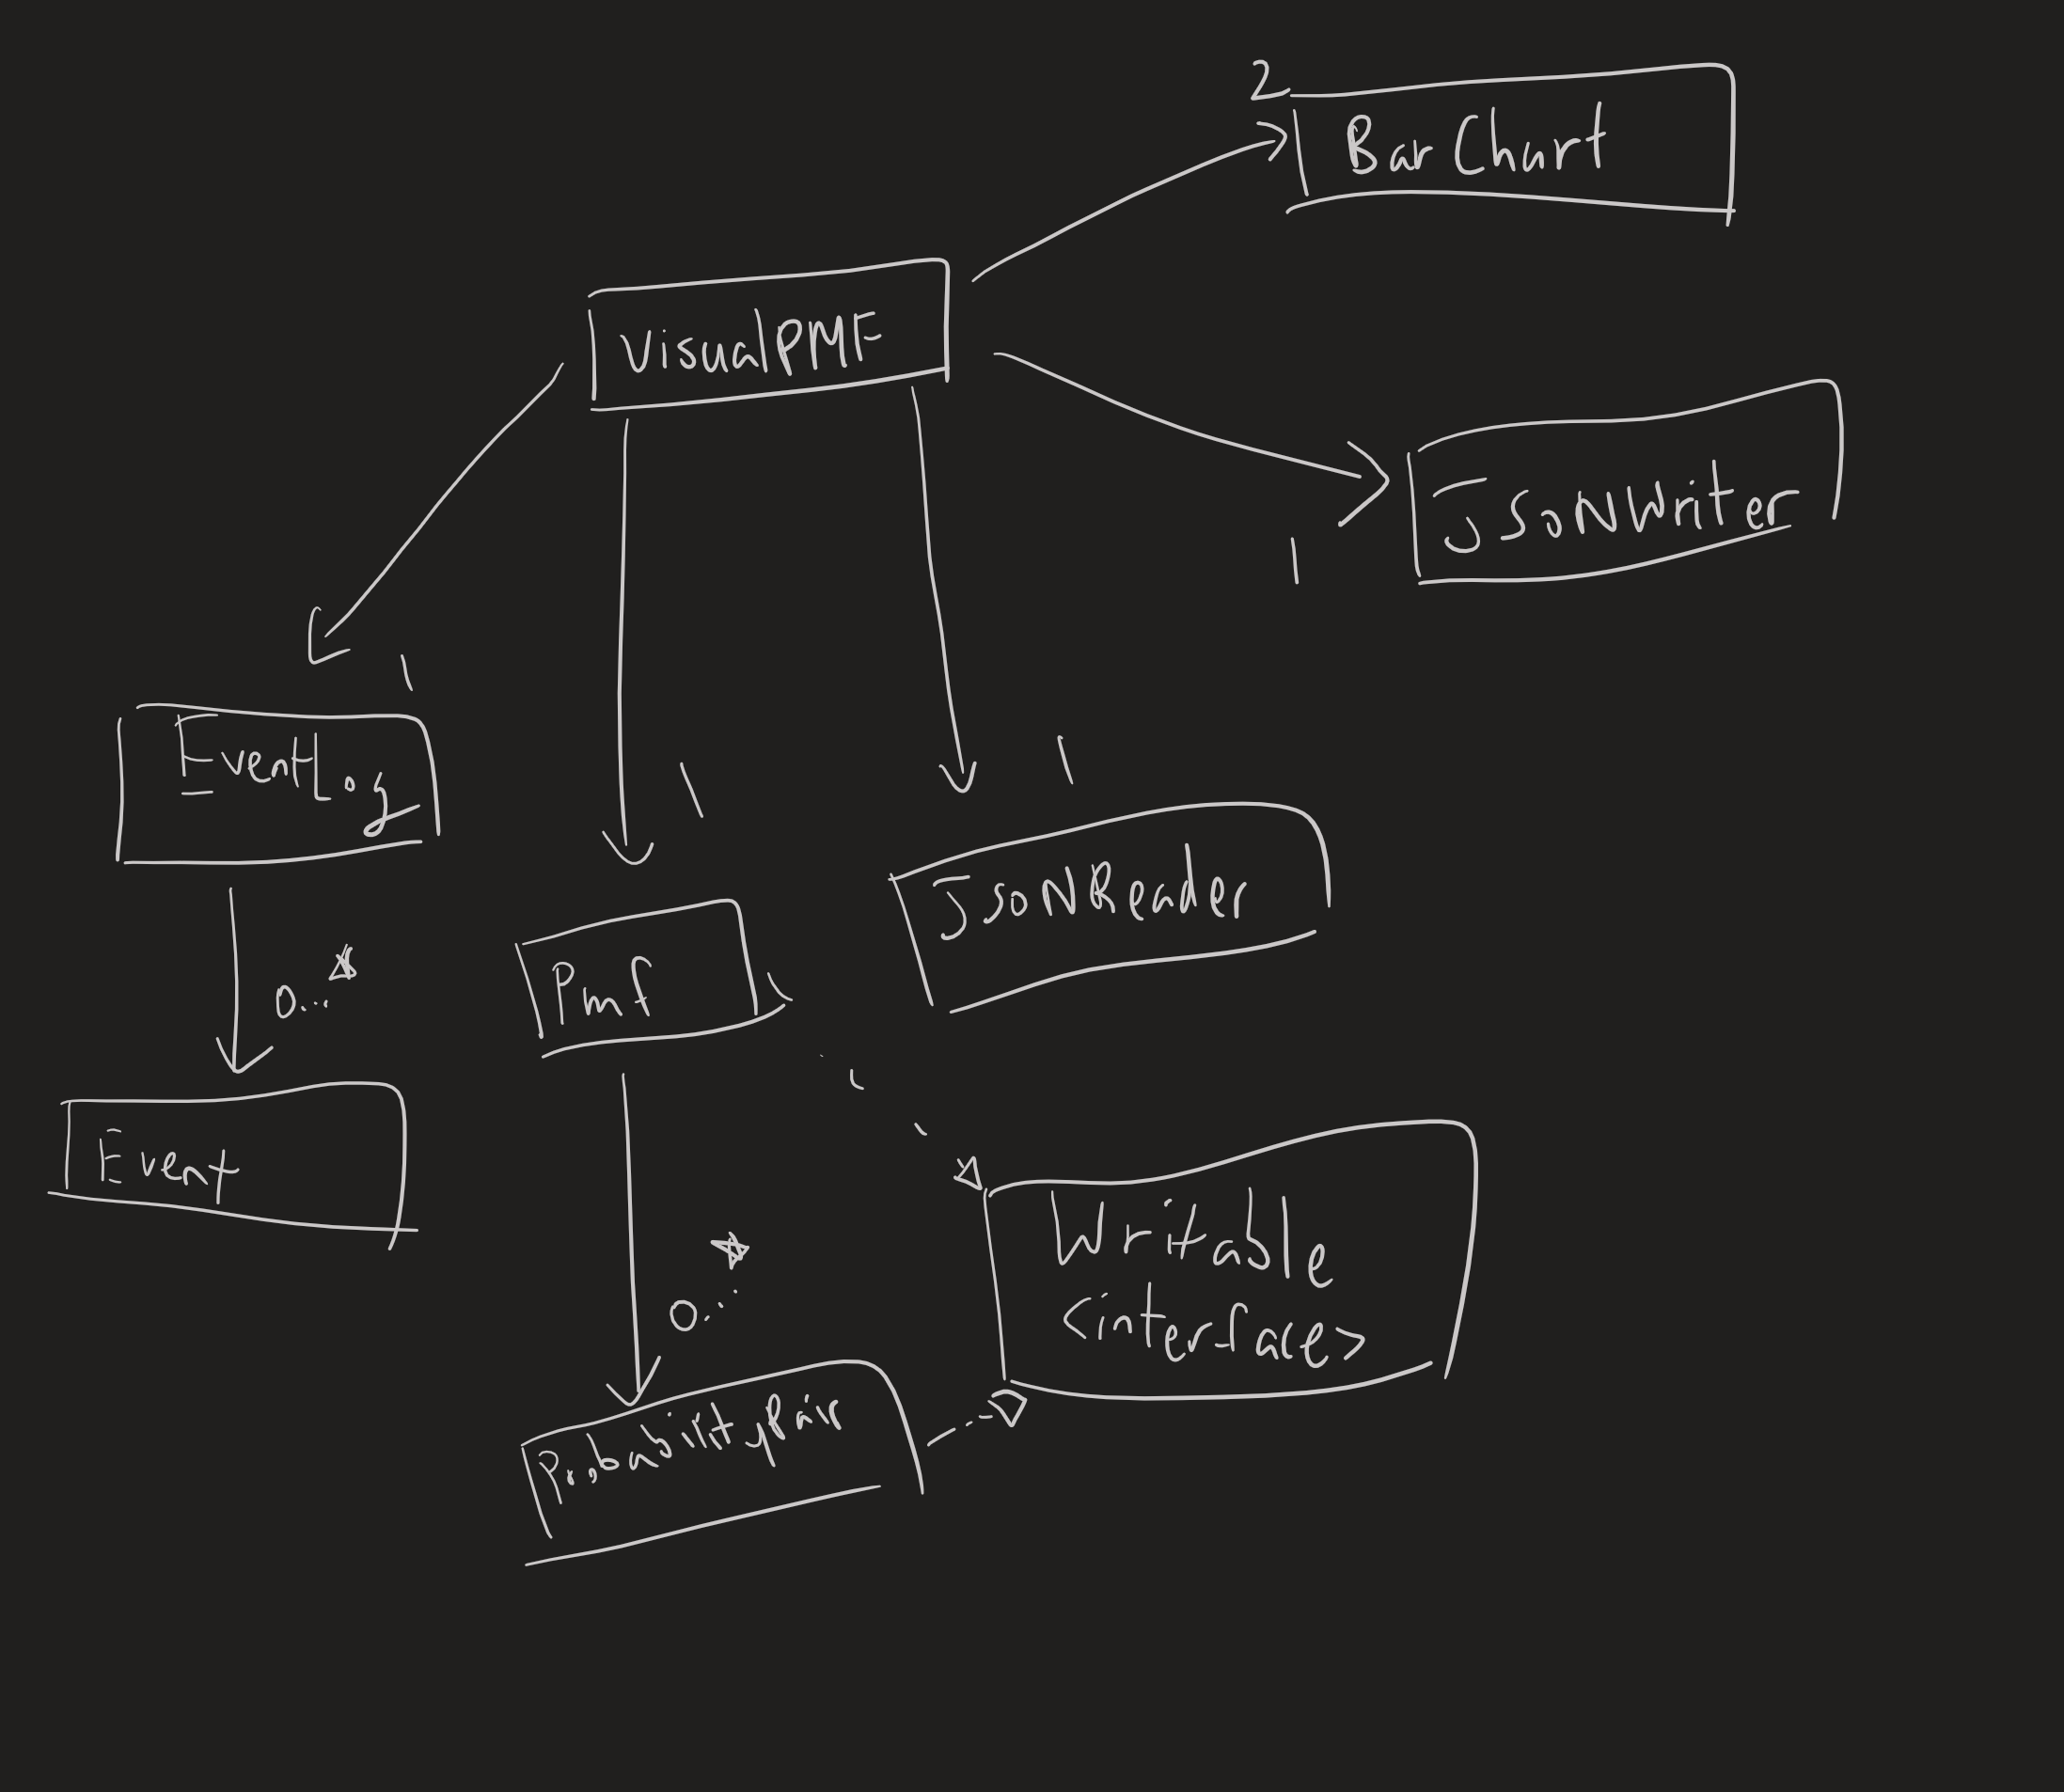 2
BarChart
VisualPMF
JsonWriter
1
1
EventLog
1
1
JsonReader
Pmf
0..*
Event
Writable
<interface>
0..*
Probability pair